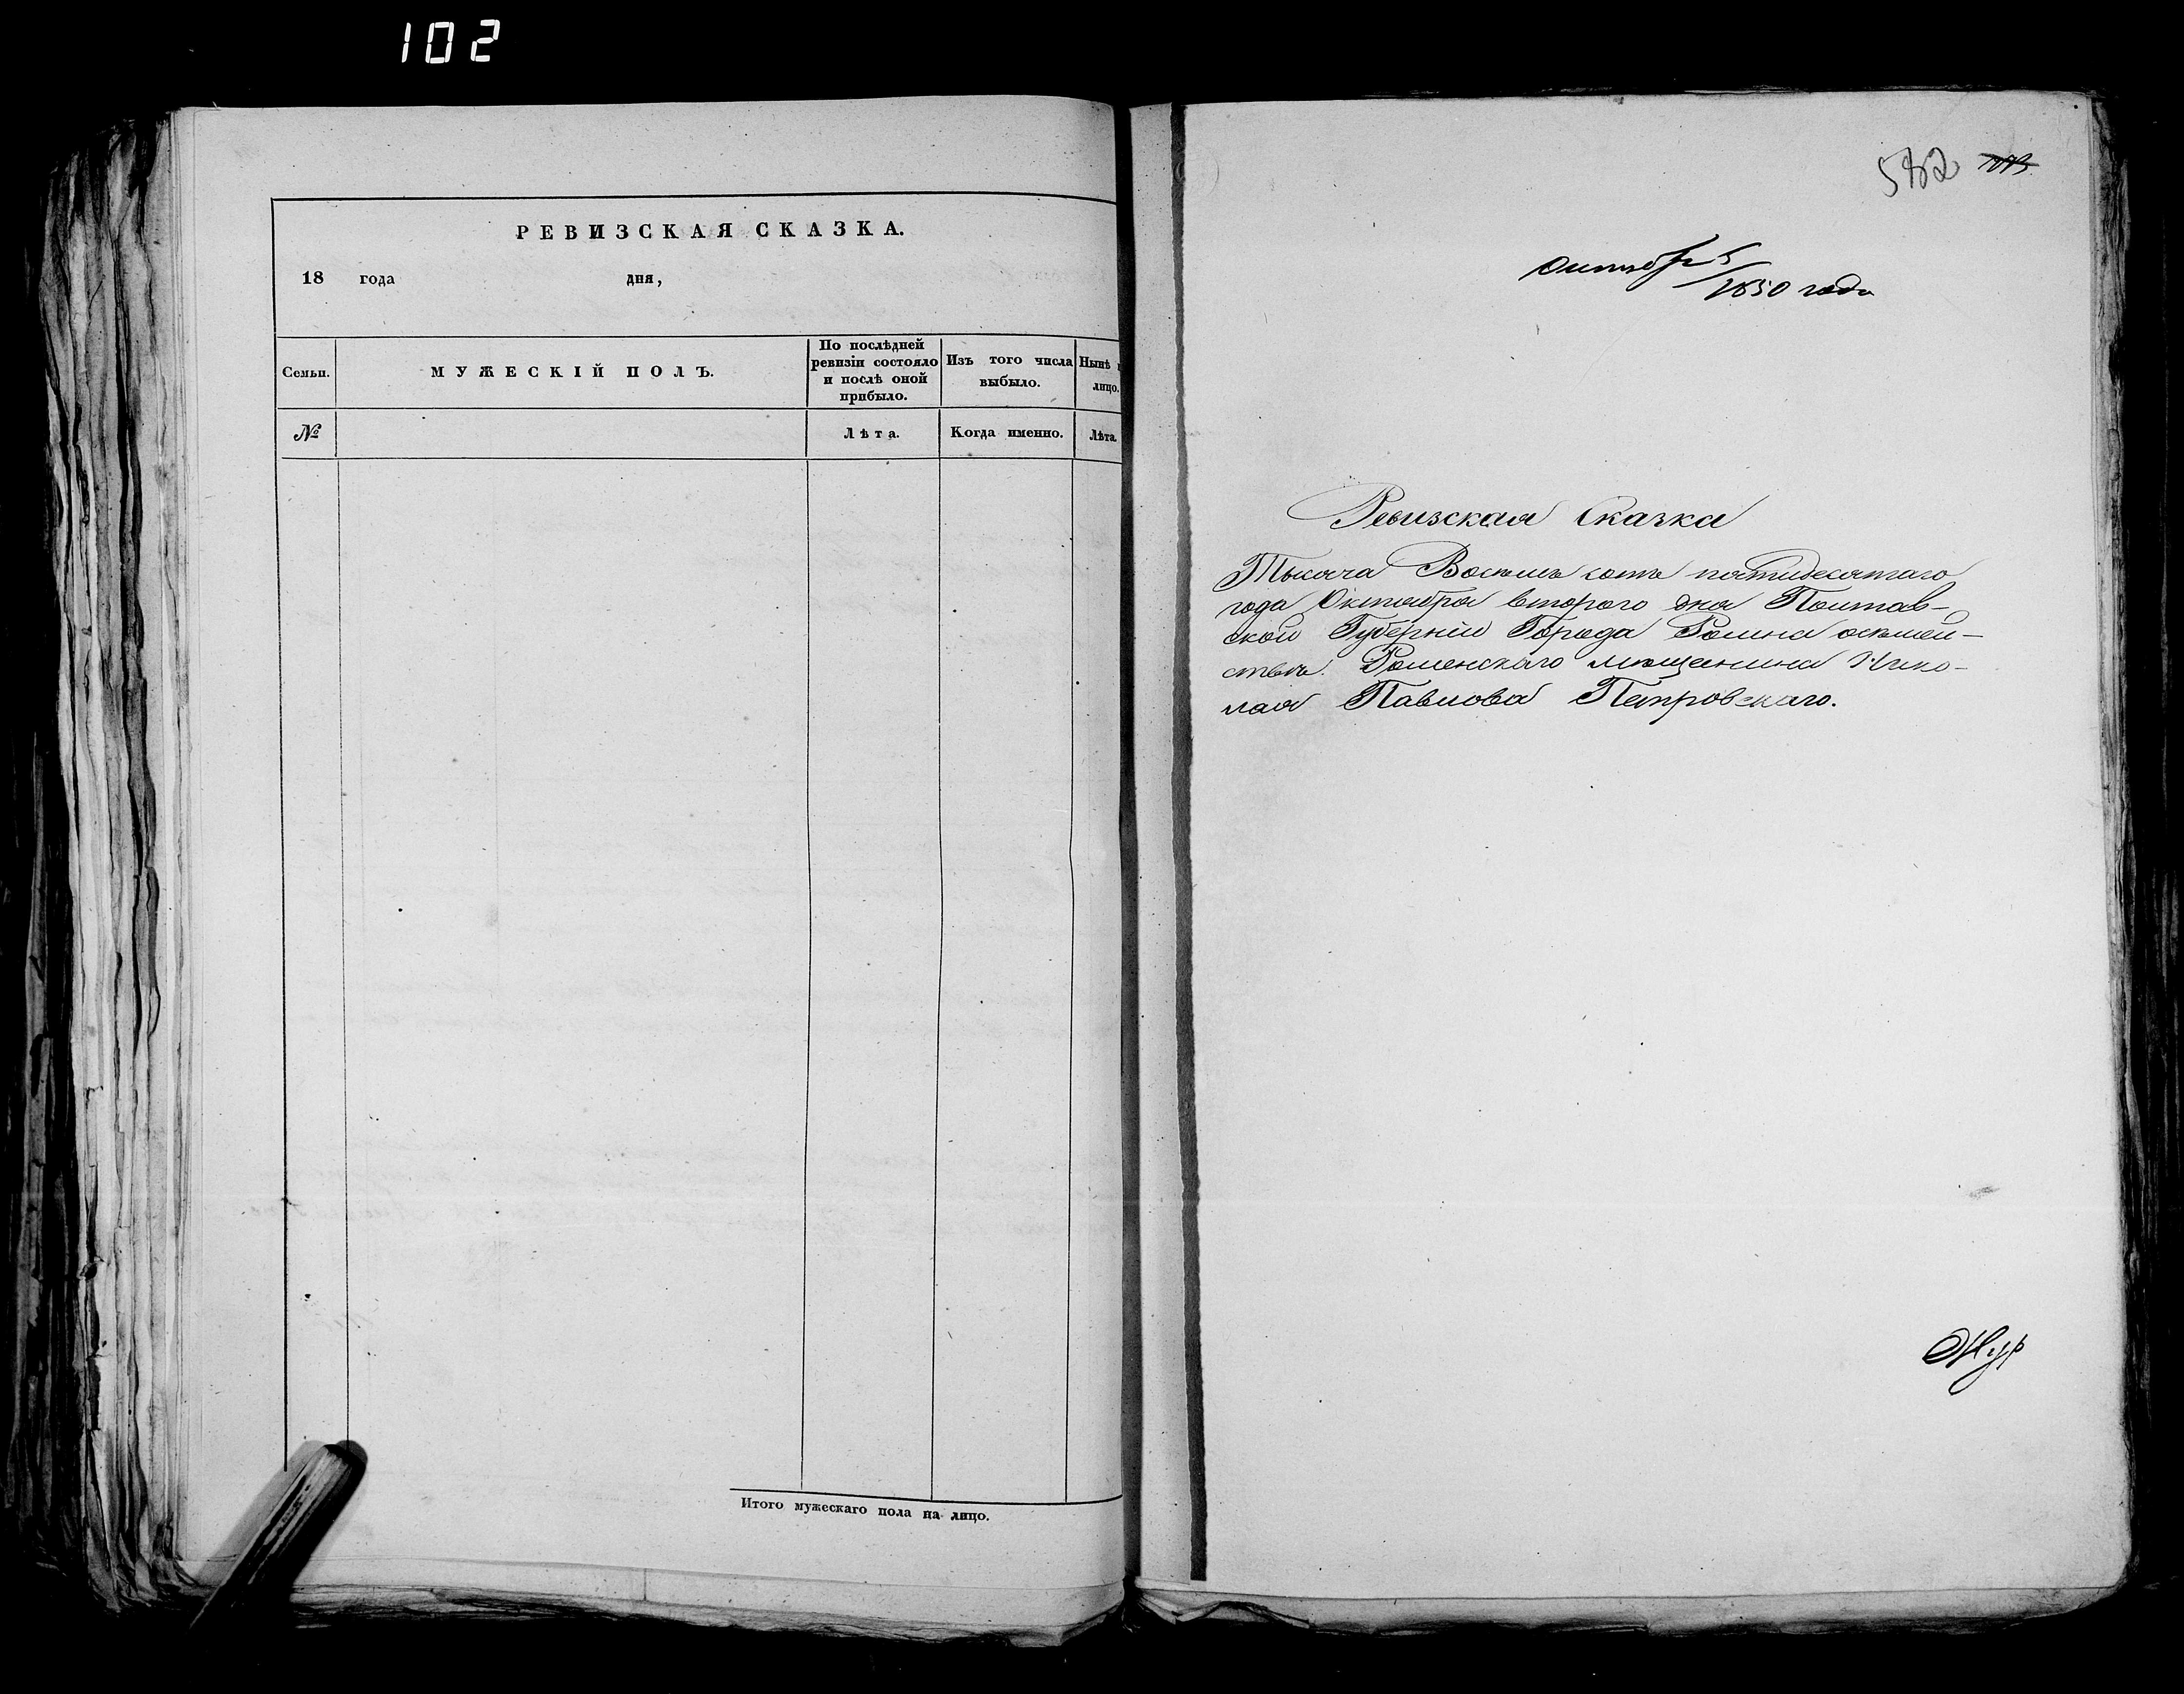 102
РЕВИЗСКАЯ СКАЗКА.
18 года дня,
Семьи.
МУЖЕСКІЙ ПОЛЪ.
По послѣдней
ревизіи состояло
и послѣ оной
прибыло.
Изъ того числа
выбыло.
Нынѣ
лицо.
№
Лѣта.
Когда именно.
Лѣта
Итого мужескаго пола на лицо.
582
5
1850 года
Ревизская Сказка
Тысяча Восемь сотъ пятидесятаго
года Октября второго дня Полтав-
ской Губерніи Города Ромна
Роменскаго мещенина Нико-
лая Павлова Петровскаго.